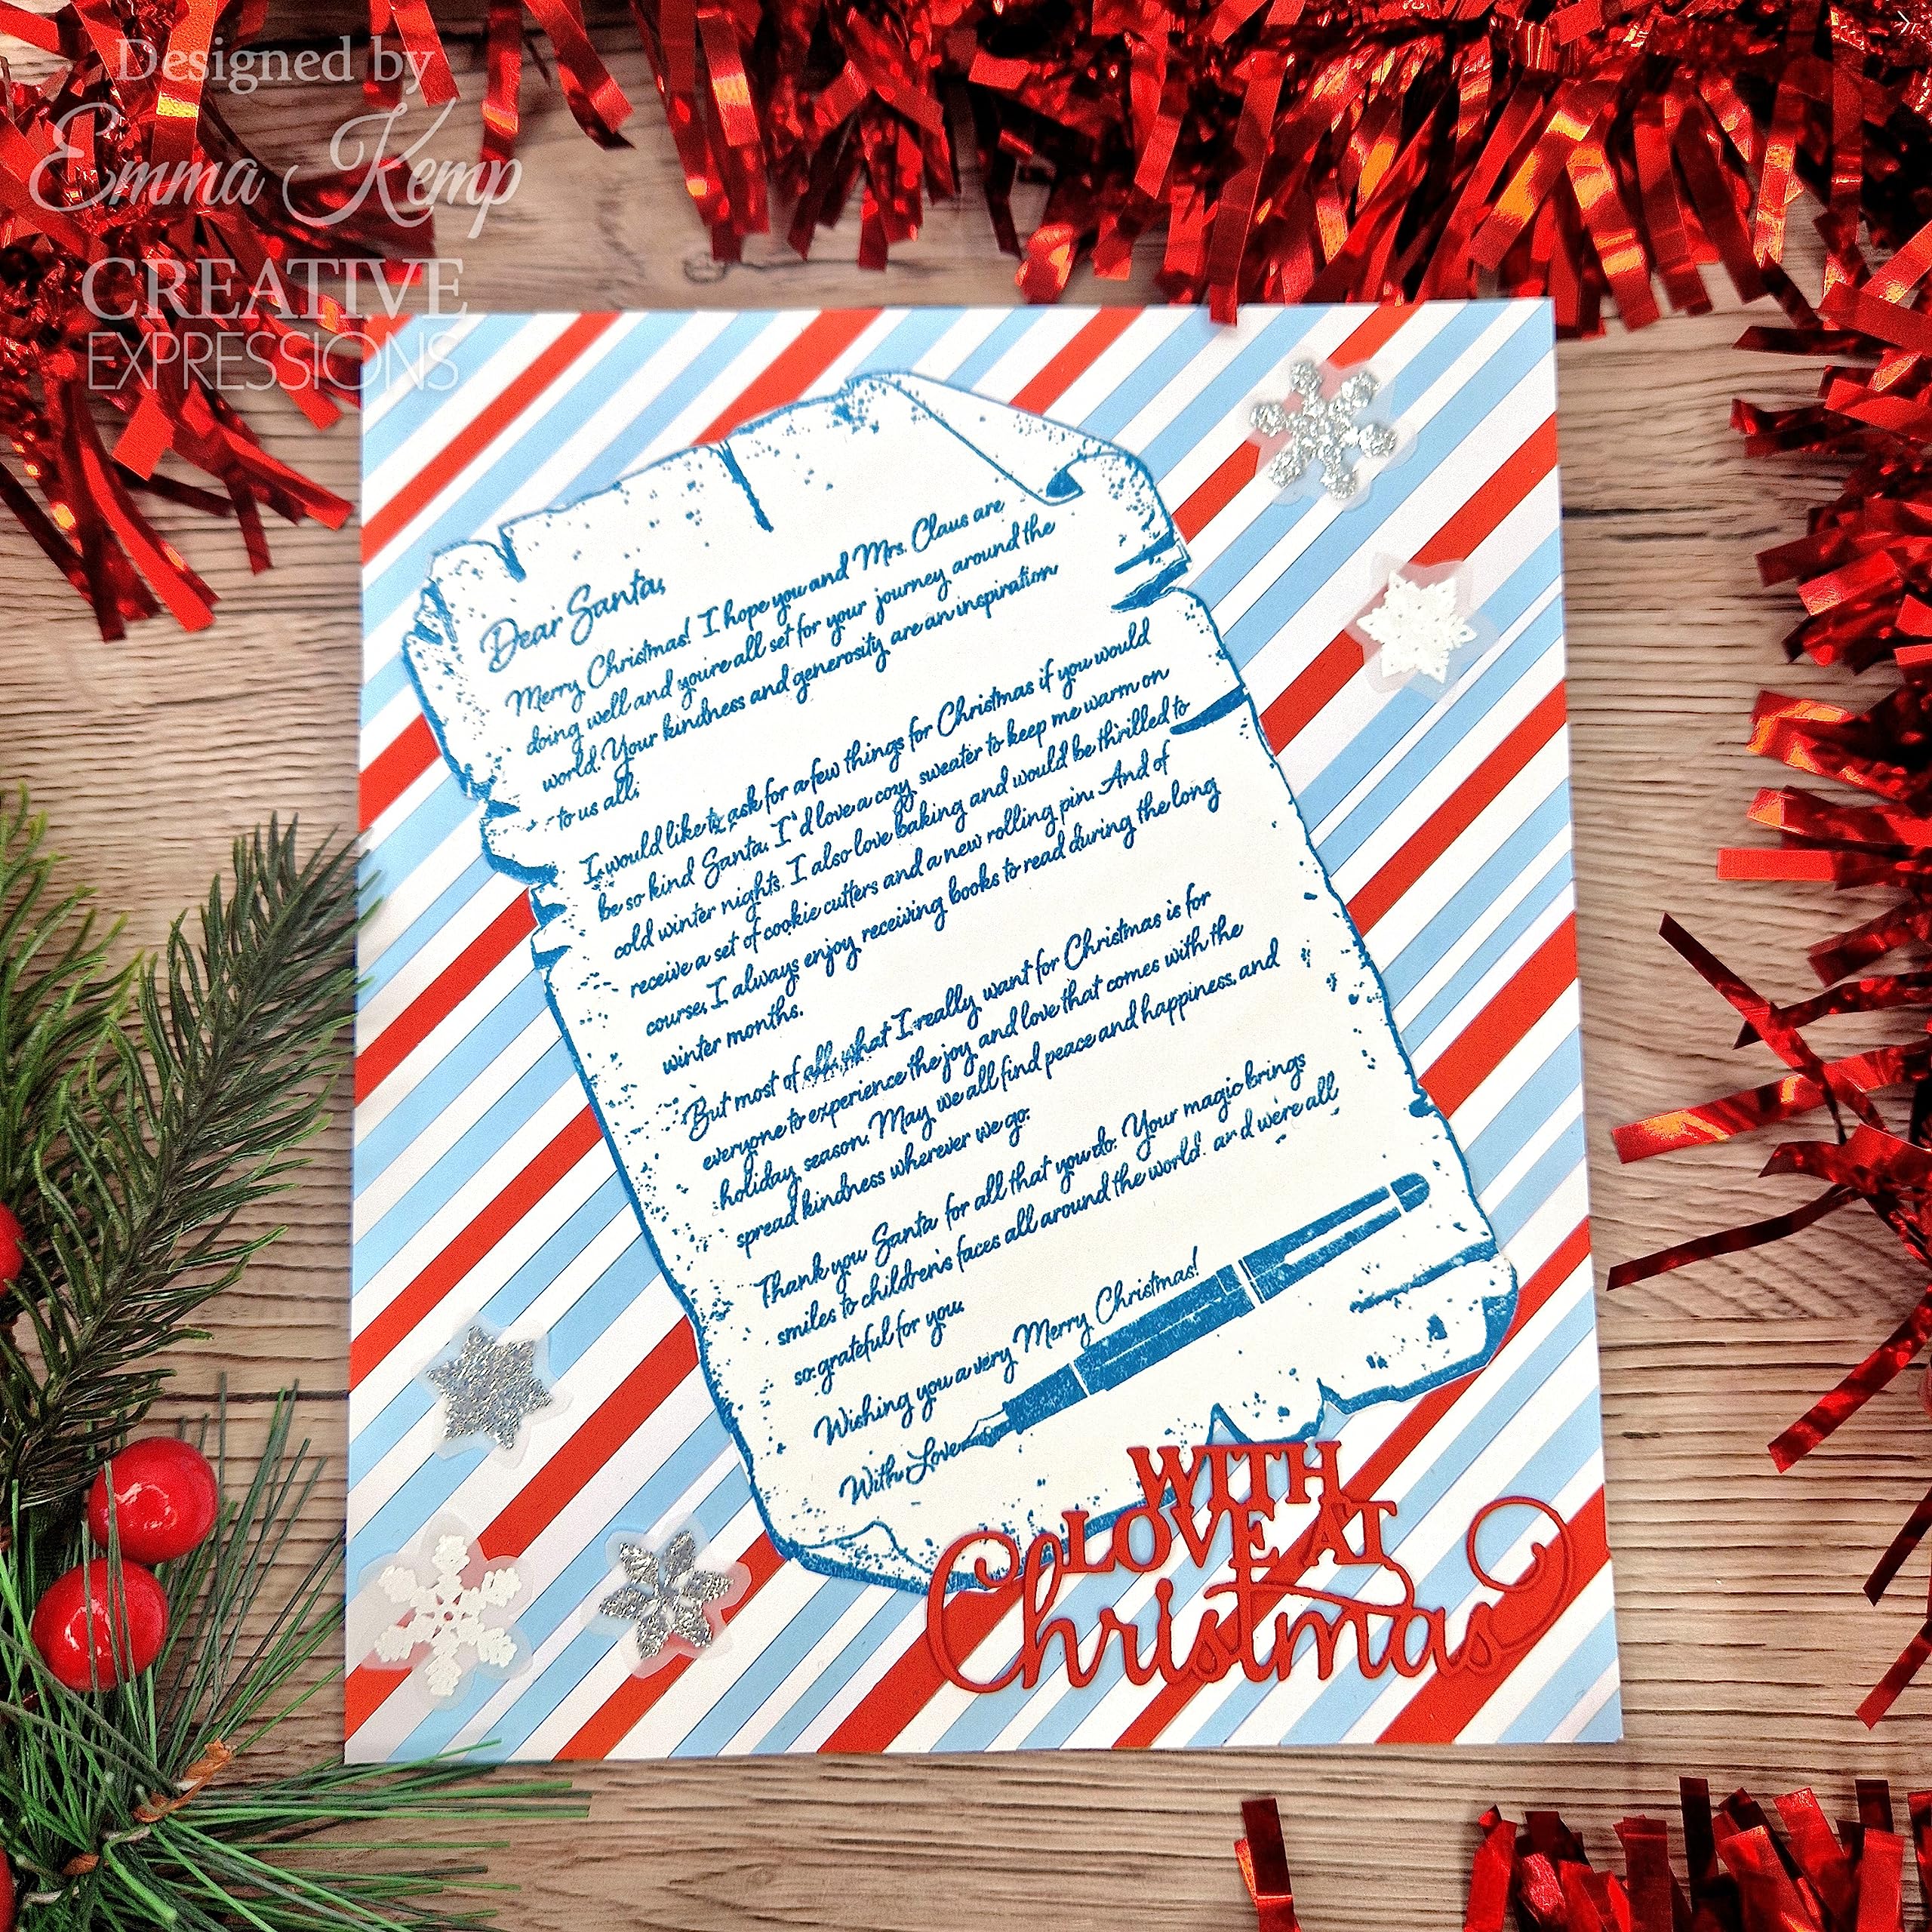 Designed by
Emma Kemp
CREATIVE
EXPRESSIONS
Dear Santa,
Merry Christmas! I hope you and Mrs. Claus are
doing well and you're all set for your journey around the
world. Your kindness and generosity are an inspiration
to us all.
I would like to ask for a few things for Christmas if you would
be so kind Santa. I'd love a cozy sweater to keep me warm on
cold winter nights. I also love baking and would be thrilled to
receive a set of cookie cutters and a new rolling pin. And of
course, I always enjoy receiving books to read during the long
winter months.
But most of all, what I really want for Christmas is for
everyone to experience the joy and love that comes with the
holiday season. May we all find peace and happiness, and
spread kindness wherever we go.
Thank you Santa for all that you do. Your magic brings
smiles to children's faces all around the world and we're all
so grateful for you.
Wishing you a very Merry Christmas!
With Love
WITH
LOVE AT
Christmas